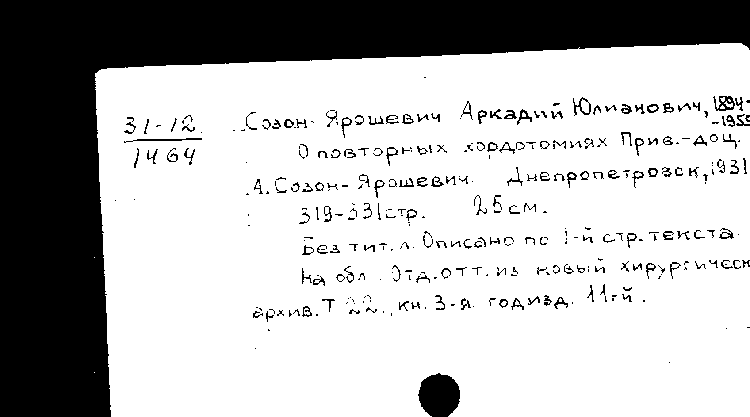 31-12
1464
Созон-Ярошевич Аркадий Юлианович, 1894-
-1955
О повторных хордотомиях Прив.-доц.
А. Созон-Ярошевич. Днепропетровск, 1931
319-331стр. 25см.
Без тит. л. Описано по 1-й стр. текста.
На обл. Отд. отт. из новый хирургическ
архив. Т 22., кн. 3-я. год изд. 11-й.